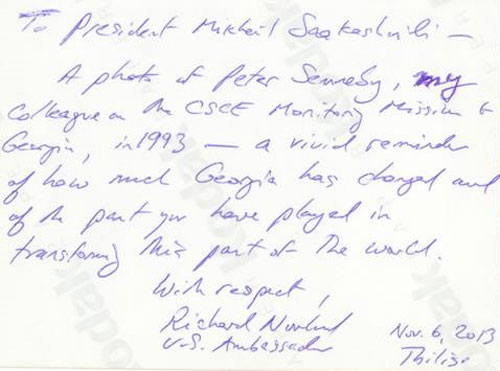 To President Mikheil Saakashvili —
A photo of Peter Semneby, my
colleague on the CSCE Monitoring Mission to
Georgia, in 1993 — a vivid reminder
of how much Georgia has changed and
of the part you have played in
transforming this part of the world.
With respect,
Richard Norland
U.S. Ambassador
Nov. 6, 2013
Tbilisi
Kodak
kodak